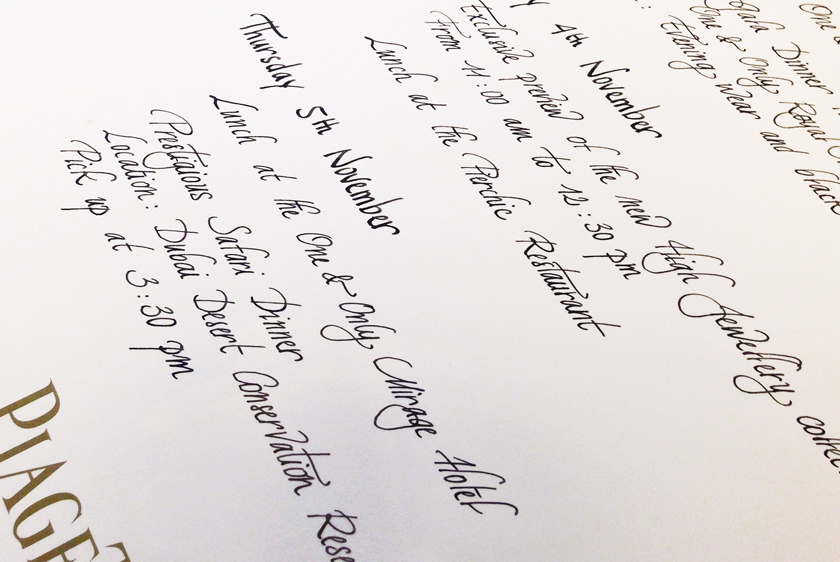 One
Gala Dinner
One & Only Royal
Evening Wear and black
4th November
Exclusive preview of the new High Jewellery
From 11:00 am to 12:30 pm
Lunch at the Pierchic Restaurant
Thursday 5th November
Lunch at the One & Only Mirage Hotel
Prestigious Safari Dinner
Location: Dubai Desert Conservation
Pick up at 3:30 pm
PIAGET